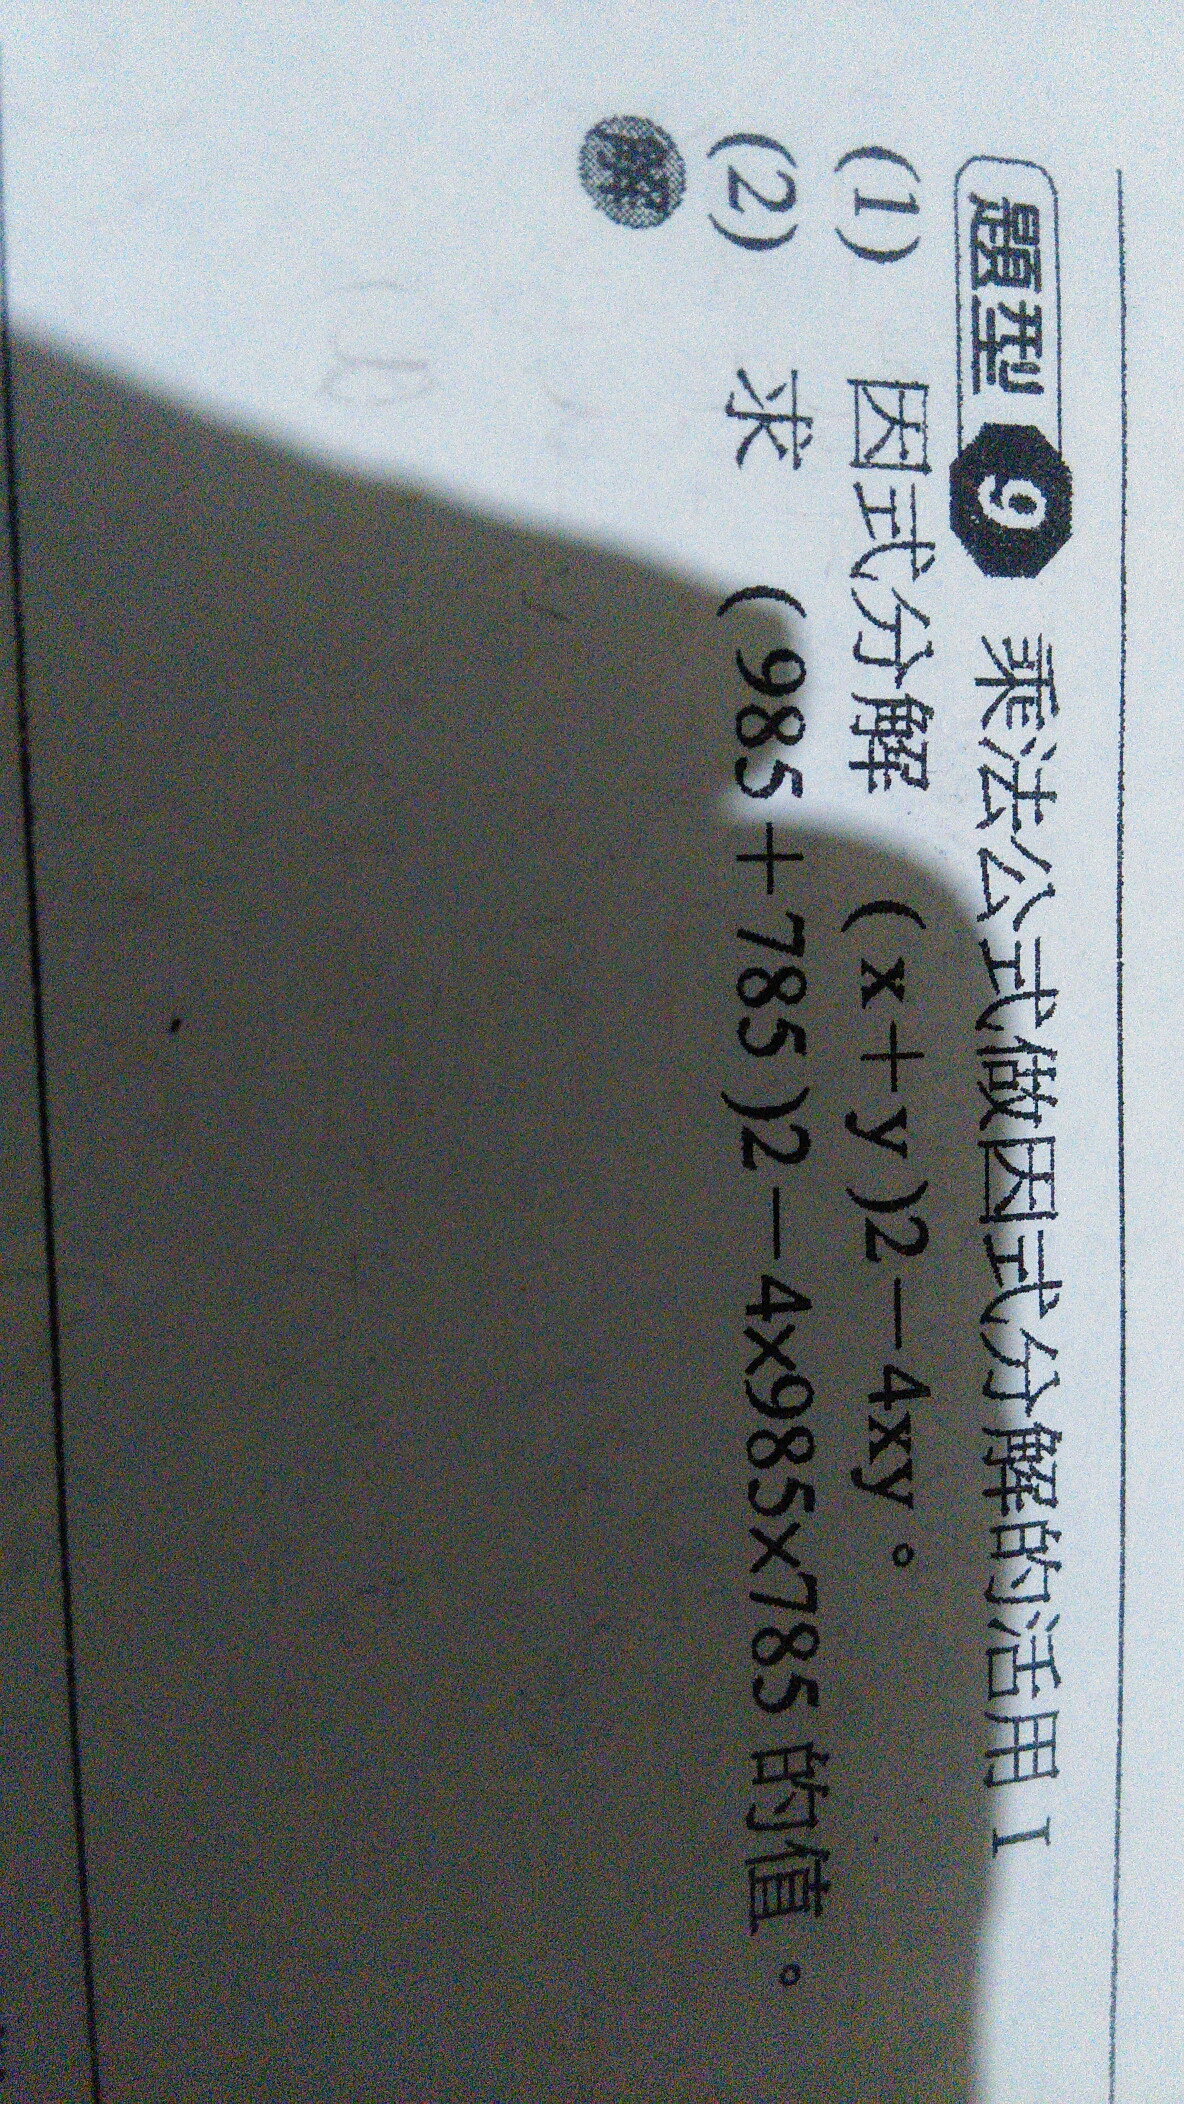 題型 9 乘法公式做因式分解的活用 I
(1) 因式分解 (x+y)2－4xy。
(2) 求 (985＋785)2－4×985×785 的值。
解